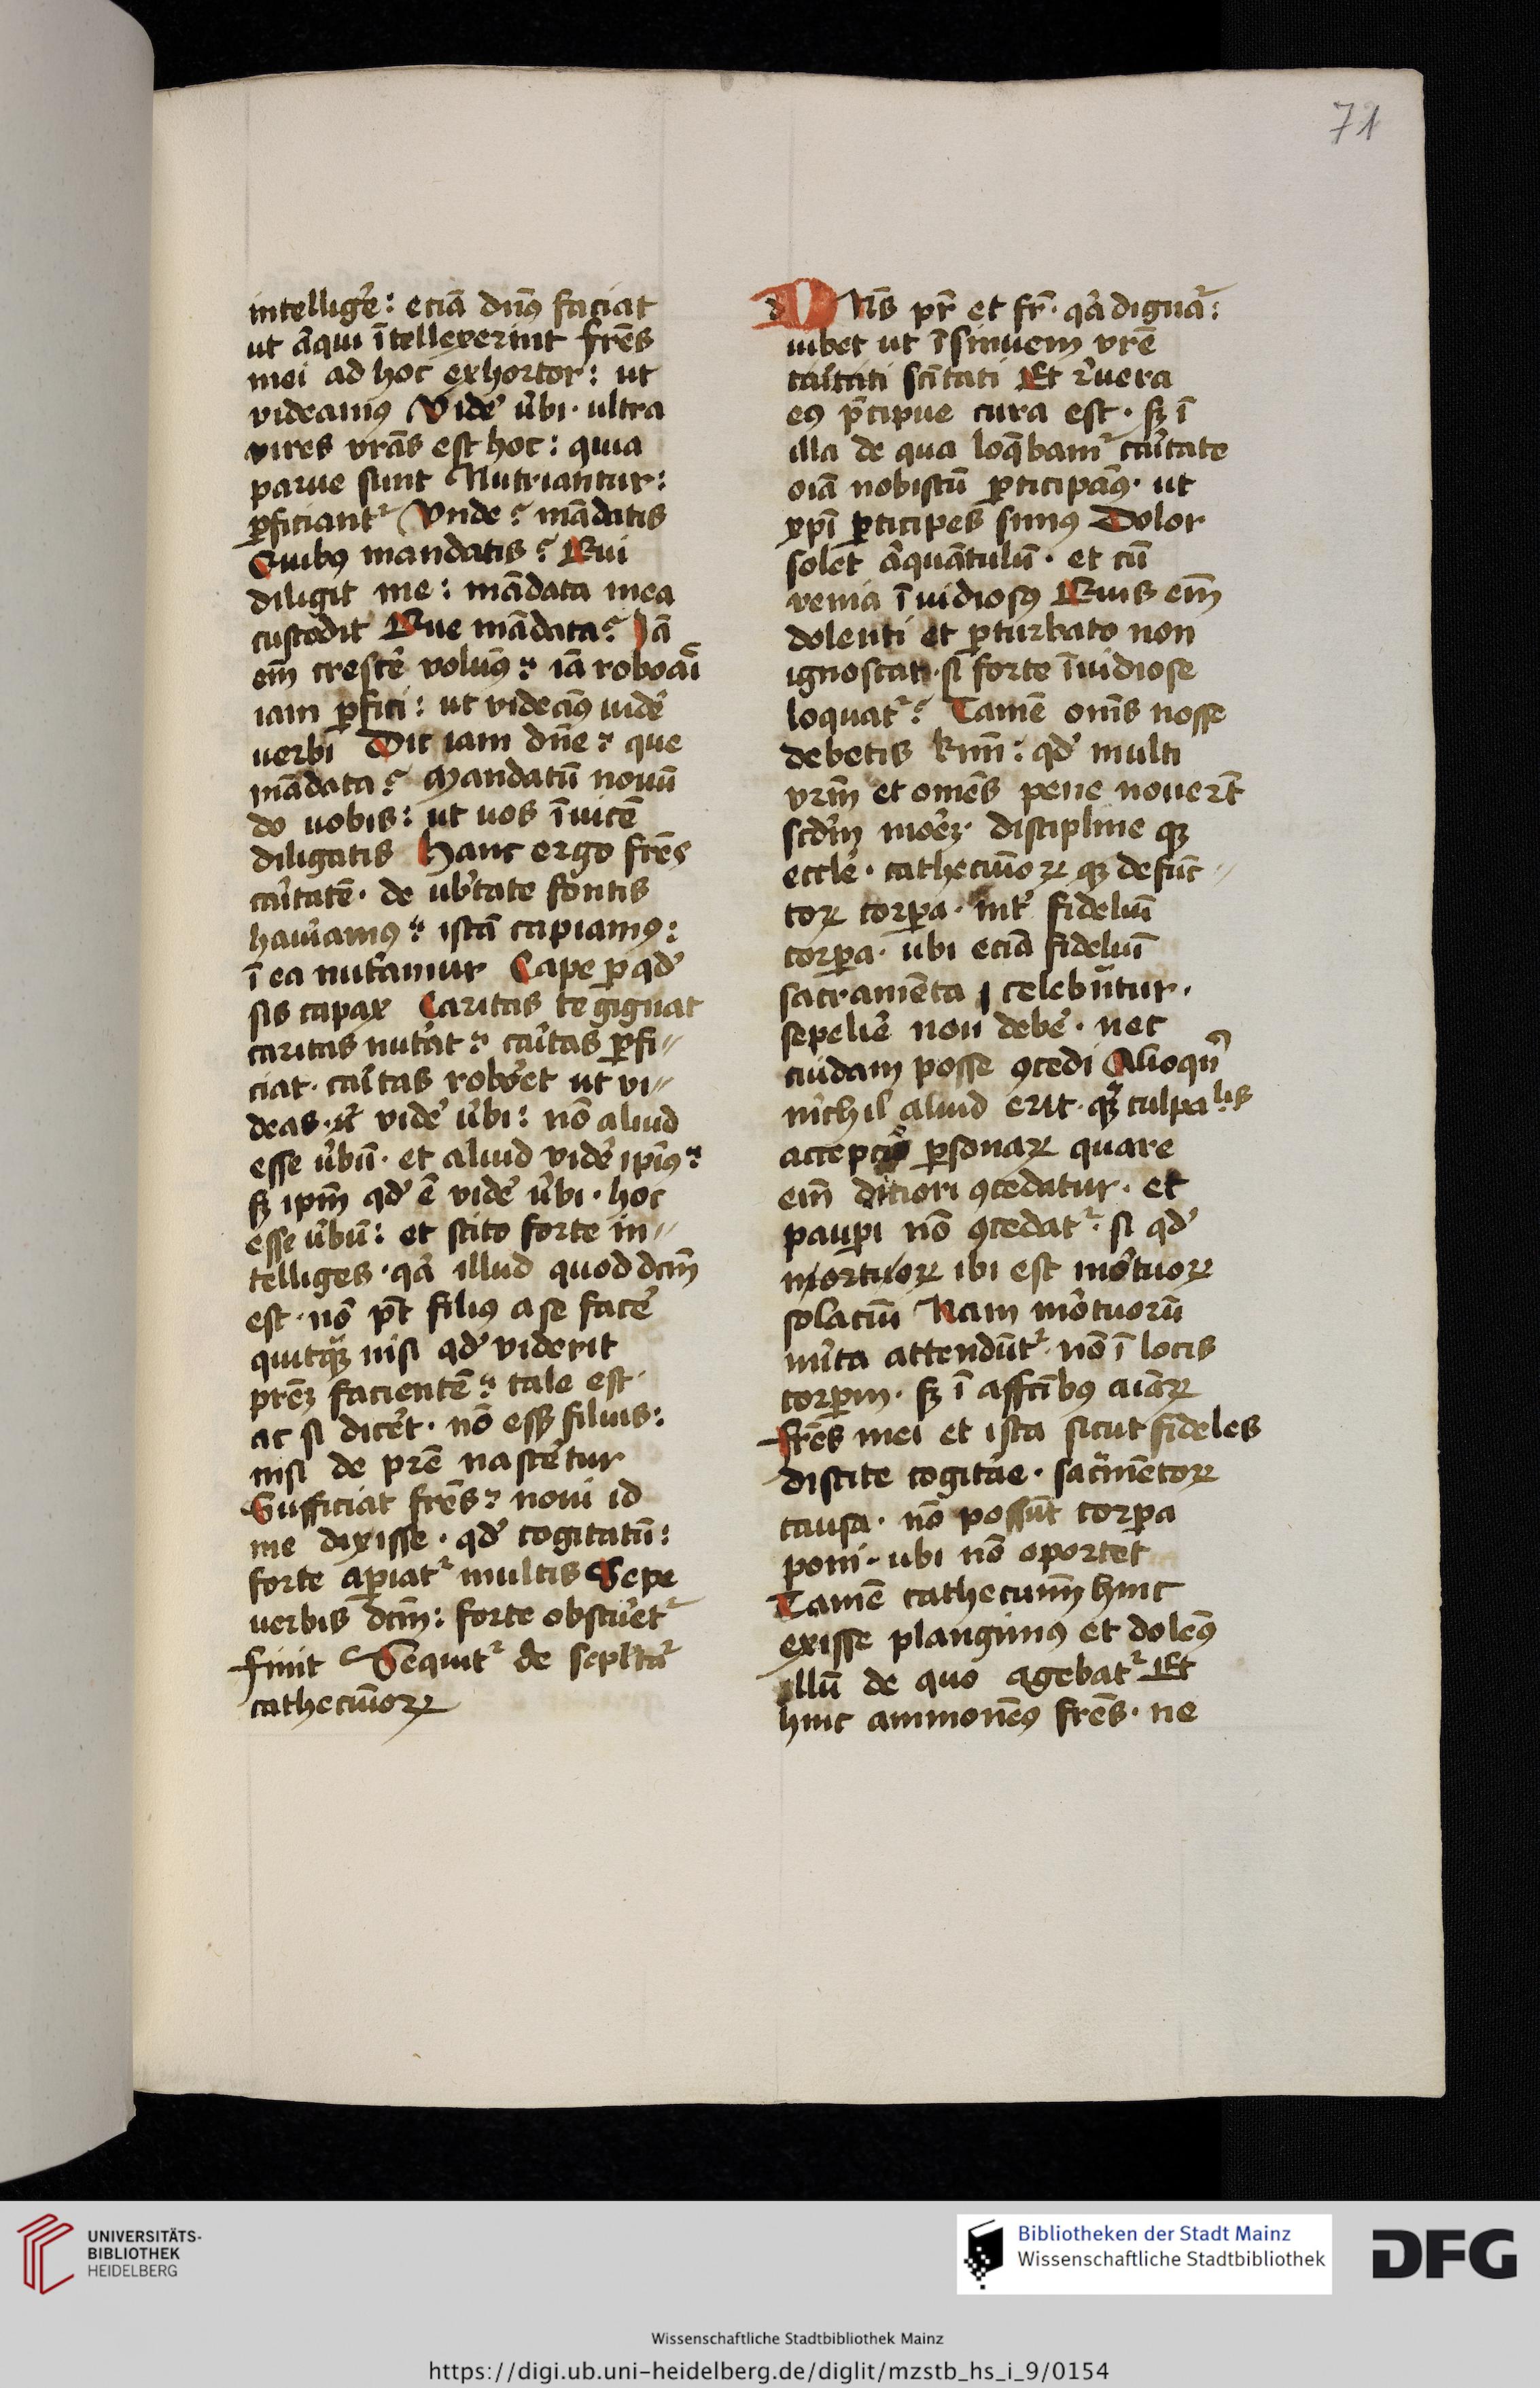 71
intelligẽ: eciã dnũs faciat
ut aliqui ĩtellexerint frẽs
mei ad hoc exhortor: ut
videamus Vidẽ vbi· ultra
vires vrãs est hoc: quia
parue sunt Nutriantur:
ꝑficiant᷑ Vnde? mãdatis
Quibꝰ mandatis? Qui
diligit me: mãdata mea
custodit Que mãdata? Jã
em̃ crescẽ volumꝰ: iã roborãi
iam ꝑfici: ut videamꝰ uidẽ
uerbũ Dic iam dñe: que
mãdata? Mandatũ nouũ
do uobis: ut uos ĩuicẽ
diligatis Hanc ergo frẽs
cãitatẽ· de ub̾tate fontis
hauriamꝰ: istã capiamꝰ:
ĩ ea nutiamur Cape ꝑ qđ
sis capax Caritas te gignat
caritas nut̾at: cãitas ꝑfi〃
ciat· cãitas roboret ut vi〃
deas· vidẽ v̾bũ: nõ aliud
esse v̾bũ· et aliud vidẽ ipiꝰ:
sꝫ ipm̃ qđ ẽ vidẽ v̾bi· hoc
esse v̾bũ: et scito forte in〃
telliges· qa illud quod dcm̃
est· nõ pt̃ filiꝰ a se facẽ
quitqꝫ nisi qđ viderit
prẽꝫ facientẽ: tale est·
ac si dicẽt· nõ essꝫ filius:
nisi de prẽ nascẽtur
Sufficiat frẽs: noui id
me dixisse· qđ cogitatũ:
forte apiat᷑ multis Sepe
uerbis dcm̃: forte obscuret᷑
finit Sequit᷑ de sepltũr
cathecũoꝝ
DNs pr̃ et fr̃· qa digna᷑:
iubet ut ĩsinuem vrẽ
cãitati scĩtati Et r̃uera
eiꝰ p̃cipue cura est· sꝫ ĩ
illa de qua loq̃bam᷑ cãitate
oĩa nobiscũ ꝑticipamꝰ· ut
xp̃i ꝑticipes simꝰ Dolor
solet aliquãtulũ· et cũ
venia ĩuidiosꝰ Quis em̃
dolenti et ꝑturbato non
ignoscat· si forte ĩuidiose
loquat᷑? Tamẽ omĩs nosse
debetis krm̃: qđ multi
vrm̃ et omẽs pene nouerũt
scdm̃ morẽꝫ discipline qꝫ
eccl̃e· cathecũoꝝ qꝫ defũc〃
toꝝ corꝑa· int̾ fideliũ
corꝑa· ubi eciã fideliũ
sacramẽta celebrãtur·
sepelire non debẽ· nec
cuidam posse ꝯcedi Alioqn̾
nichil aliud erit· qꝫ culpalis
accepcio ꝑsonaꝝ quare
em̃ diciori ꝯcedatur· et
pauꝑi nõ ꝯcedat᷑· si qđ
mortuoꝝ ibi est mortuoꝝ
solaciũ Nam mortuorũ
mita attendũt᷑· nõ ĩ locis
corꝑm· sꝫ ĩ affcĩbꝰ aĩaꝝ
frẽs mei et ista sicut fideles
discite cogitãe· sacrãmẽtoꝝ
causa· nõ possũt corꝑa
poni· ubi nõ oportet
Tamẽ cathecumm̃ hinc
exisse plangimꝰ et dolemꝰ
illũ de quo agebat᷑ Et
hinc ammonemꝰ frẽs· ne
UNIVERSITÄTS-
BIBLIOTHEK
HEIDELBERG
Bibliotheken der Stadt Mainz
Wissenschaftliche Stadtbibliothek
DFG
Wissenschaftliche Stadtbibliothek Mainz
https://digi.ub.uni-heidelberg.de/diglit/mzstb_hs_i_9/0154